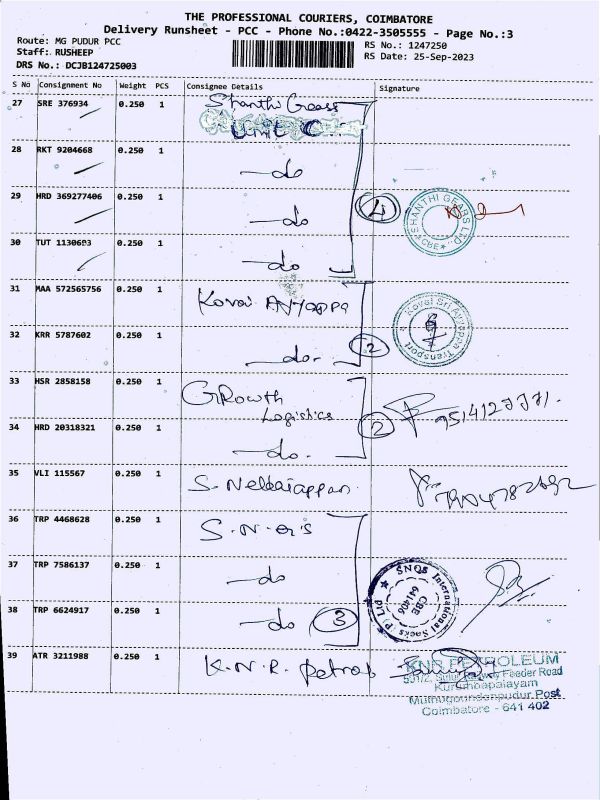 THE PROFESSIONAL COURIERS, COIMBATORE
Delivery Runsheet - PCC - Phone No.:0422-3505555 - Page No.:3
Route: MG PUDUR PCC
RS No.: 1247250
Staff: RUSHEEP
RS Date: 25-Sep-2023
DRS No.: DCJB124725003
S No Consignment No Weight PCS Consignee Details Signature
27 SRE 376934 0.250 1 Shanthi Gears
Unit C
28 RKT 9204668 0.250 1 -do
29 HRD 369277406 0.250 1 -do 4
SHANTHI GEARS LTD. CBE
30 TUT 1130693 0.250 1 -do
31 MAA 572565756 0.250 1 Kovai Ayyappa
Kovai Sri Ayyappa Transport
32 KRR 5787602 0.250 1 -do. 2
33 HSR 2858158 0.250 1 Growth
Logistics
34 HRD 20318321 0.250 1 -do. 2
35 VLI 115567 0.250 1 S. Nellaiappan
36 TRP 4468628 0.250 1 S.N.
37 TRP 7586137 0.250 1 -do
SNQS International Socks (P) Ltd
CBE
641406
38 TRP 6624917 0.250 1 -do 3
39 ATR 3211988 0.250 1 K.N.R. Petrol
KNR PETROLEUM
501/2, Sulur Railway Feeder Road
Kurumbapalayam
Muthugoundenpudur Post
Coimbatore - 641 402